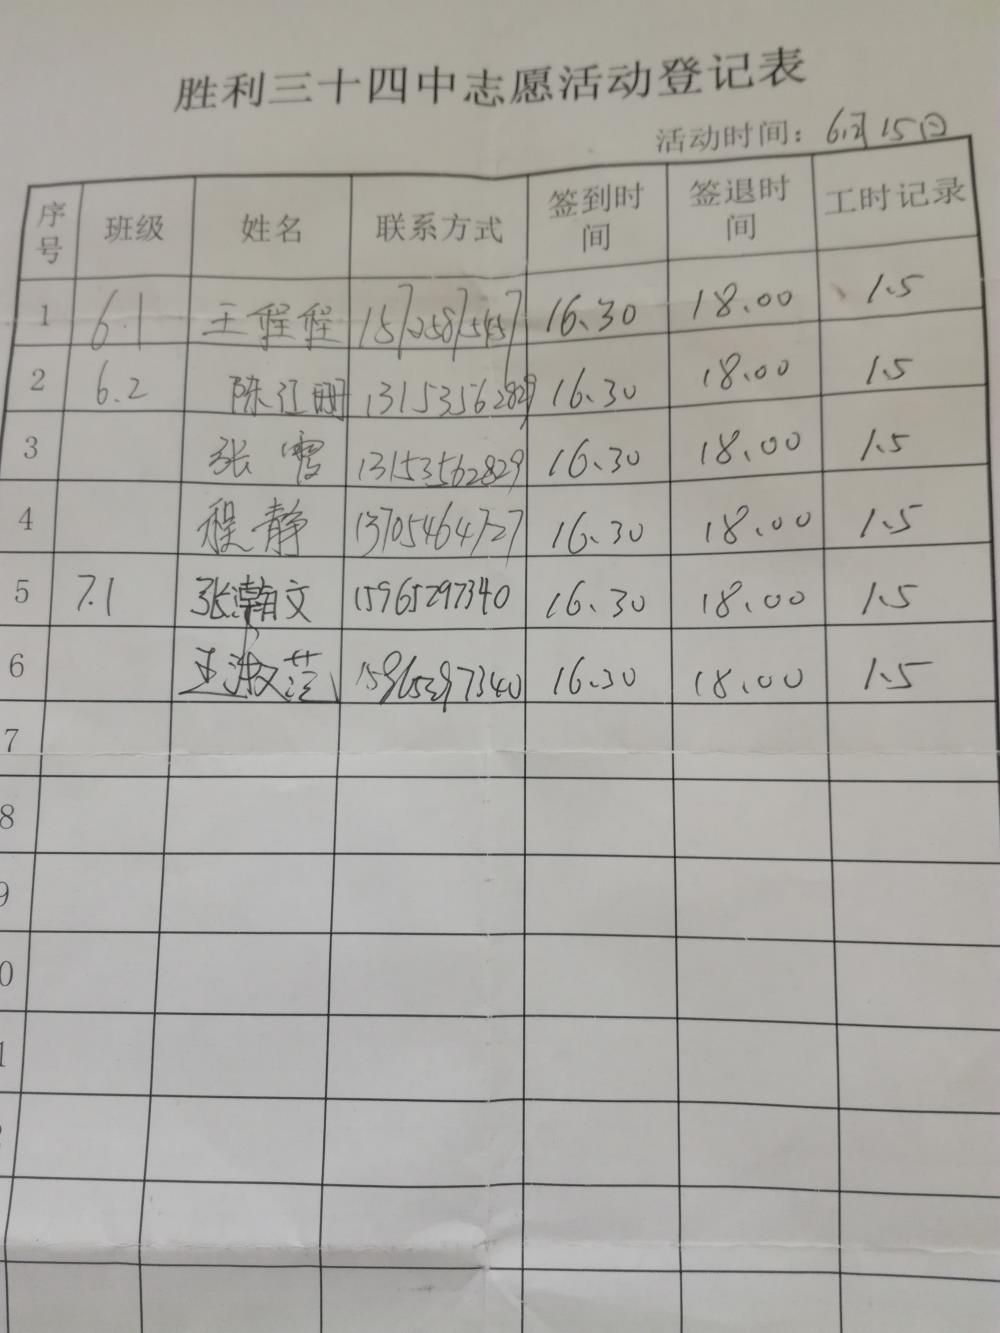 胜利三十四中志愿活动登记表
活动时间：6月15日
序号 班级 姓名 联系方式 签到时间 签退时间 工时记录
1 6.1 王程程 16.30 18.00 1.5
2 6.2 陈江珊 13153562829 16.30 18.00 1.5
3 张雪 13153562829 16.30 18.00 1.5
4 程静 13705464727 16.30 18.00 1.5
5 7.1 张瀚文 15965297340 16.30 18.00 1.5
6 王淑范 15965297340 16.30 18.00 1.5
7
8
9
0
1